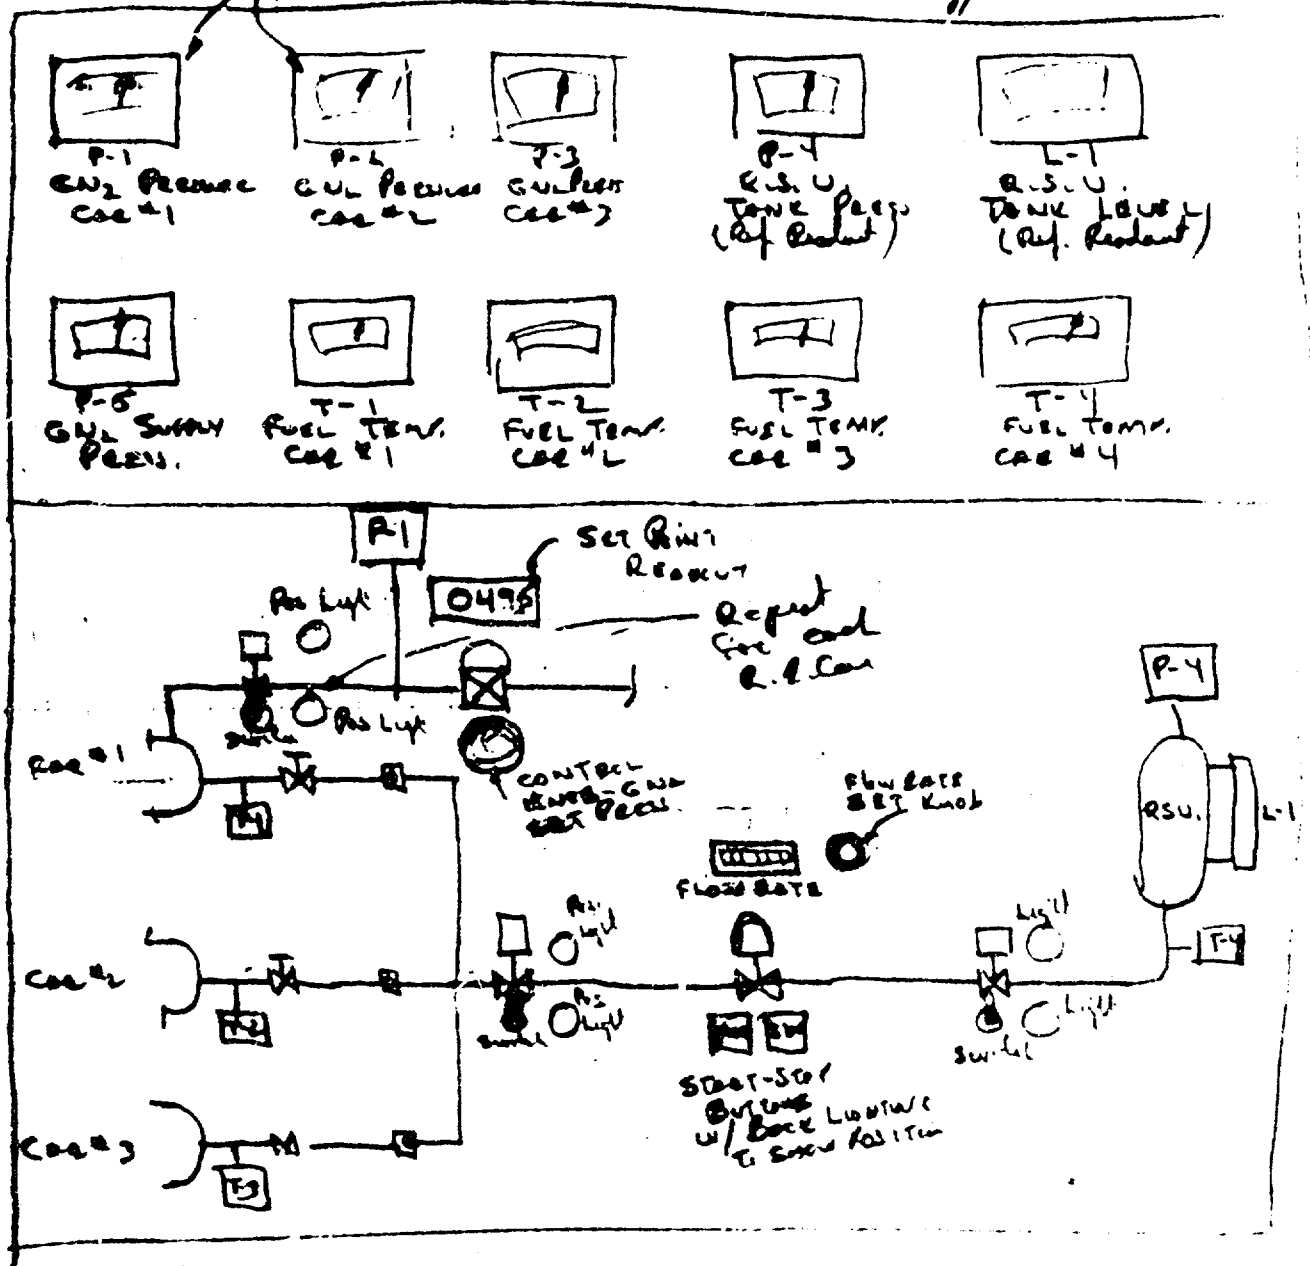 P-1
GN2 PRESSURE
CAR #1
P-2
GN2 PRESSURE
CAR #2
P-3
GN2 PRESS
CAR #3
P-4
R.S.U.
TANK PRESS
(Ref. Readout)
L-1
R.S.U.
TANK LEVEL
(Ref. Readout)
P-5
GN2 SUPPLY
PRESS.
T-1
FUEL TEMP.
CAR #1
T-2
FUEL TEMP.
CAR #2
T-3
FUEL TEMP.
CAR #3
T-4
FUEL TEMP.
CAR #4
P-1
SET POINT
READOUT
0495
Pos Light
Repeat
for each
R.R. Car
Pos Light
Switch
CAR #1
T-1
CONTROL
GN2
SET PRESS.
FLOW RATE
SET Knob
FLOW RATE
P-4
RSU.
L-1
T-4
CAR #2
T-2
Pos
Light
Pos
Light
Switch
Light
Light
Switch
START-STOP
BUTTONS
W/ BACK LIGHTING
To SHOW POSITION
CAR #3
T-3